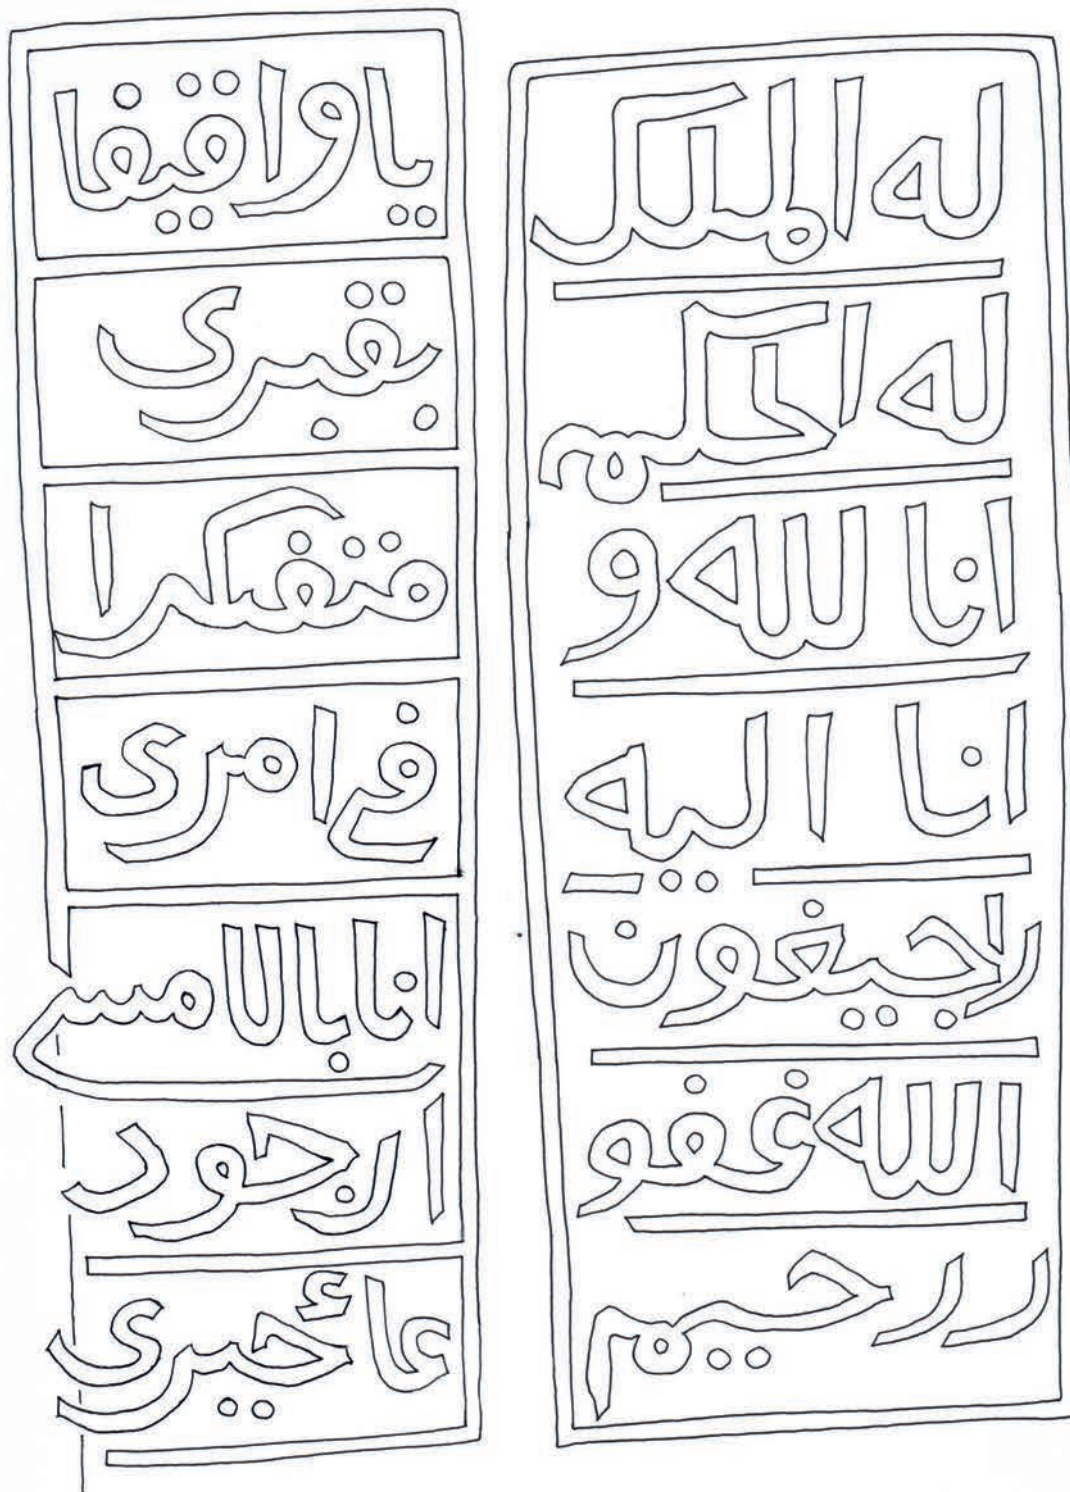 له الملك
له الحكم
انا لله و
انا اليه
راجيغون
الله غفو
ر رحيم
يا واقيفا
بقبرى
متفكرا
في امرى
انا بالامس
ارجود
عاء حيرى